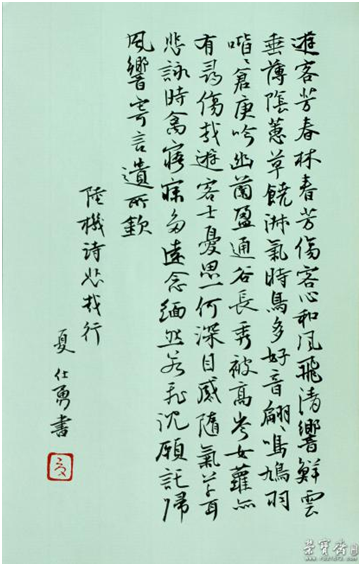 遊客芳春林春芳傷客心和風飛清響鮮雲
垂薄陰蕙草饒淑氣時鳥多好音翩〻鳴鳩羽
喈〻倉庚吟幽蘭盈通谷長秀被高岑女蘿亦
有尋傷哉遊客士憂思一何深目感隨氣草耳
悲詠時禽寤寐多遠念緬然若飛沈願託歸
風響寄言遺所欽
陸機詩悲哉行
夏仕勇書